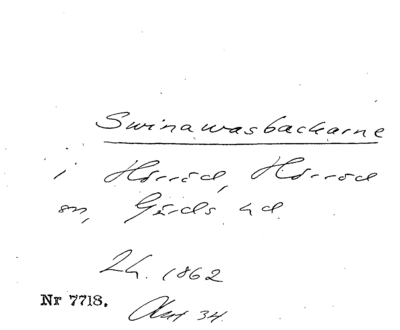 Swinawasbackarne
i Hörröd, Hörröd
sn, Gärds hd.
Lh. 1862
Nr 7718.
Akt 34.